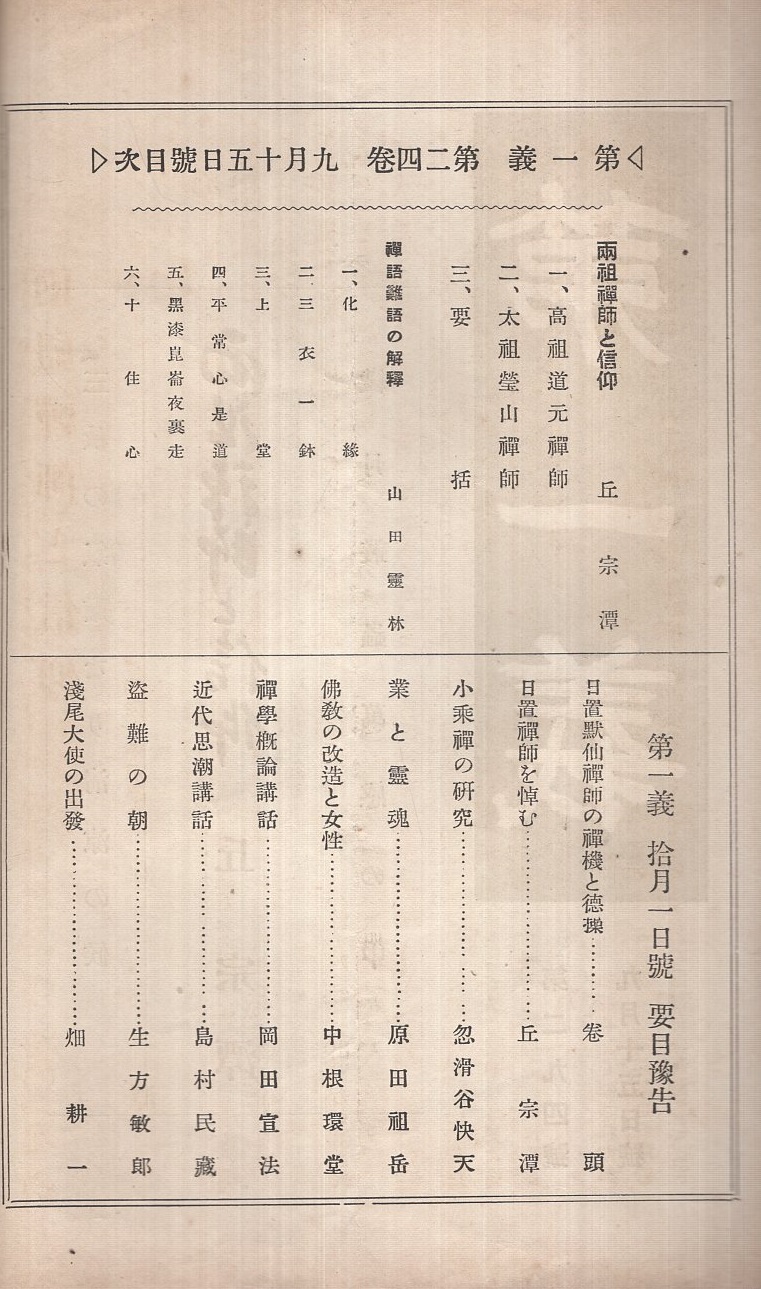 第一義 第二四卷 九月十五日號目次
兩祖禪師と信仰 丘宗潭
一、高祖道元禪師
二、太祖瑩山禪師
三、要括
禪語難語の解釋 山田靈林
一、化緣
二、三衣一鉢
三、上堂
四、平常心是道
五、黑漆崑崙夜裏走
六、十住心
第一義 拾月一日號 要目豫告
日置默仙禪師の禪機と德操………卷頭
日置禪師を悼む………丘宗潭
小乘禪の硏究………忽滑谷快天
業と靈魂………原田祖岳
佛敎の改造と女性………中根環堂
禪學槪論講話………岡田宣法
近代思潮講話………島村民藏
盜難の朝………生方敏郎
淺尾大使の出發………畑耕一